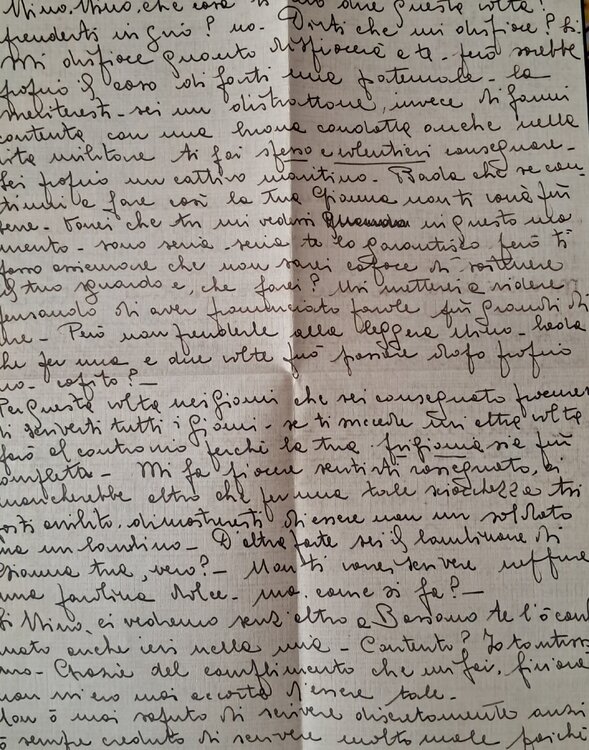 Nino, Nino, che cosa ti ... due questa volta?
prenderti in giro? no. Dirti che mi dispiace? Si.
Mi dispiace quanto dispiacerà a te - però sarebbe
proprio il caso di farti una paternale - la
meriteresti - sei un distrattone, invece di farmi
contenta con una buona condotta anche nella
vita militare ti fai spesso e volentieri consegnare -
Sei proprio un cattivo maritino - Bada che se con
tinui a fare così la tua Gianna non ti vorrà più
bene - Vorrei che tu mi vedessi in questo mo
mento - sono seria - seria te lo garantisco però ti
posso assicurare che non sarei capace di sostenere
il tuo sguardo e, che farei? Mi metterei a ridere
pensando di aver pronunciato parole più grandi di
me - Però non prenderle alla leggera Nino - bada
che per una e due volte può passare dopo proprio
no - capito? -
Per questa volta nei giorni che sei consegnato
ti scriverti tutti i giorni - se ti succede un'altra volta
farò al contrario perché la tua prigionia sia più
completta - Mi fa piacere sentirti rassegnato, ci
mancherebbe altro che per una tale sciocchezza tu
avvilito, dimostreresti di essere non un soldato
ma un bambino - D'altra parte sei il bambinone di
Gianna tua, vero? - Non ti vorrei scrivere neppure
una parolina dolce - ma, come si fa? -
Si Nino, ci vedremo senz'altro a Bassano te l'ò confer
mato anche ieri nella mia - Contento? Io tantissi
mo - Grazie del complimento che mi fai, finora
non mi ero mai accorta d'essere tale -
Non ò mai saputo di scrivere discretamente anzi
ò sempre creduto di scrivere molto male poiché